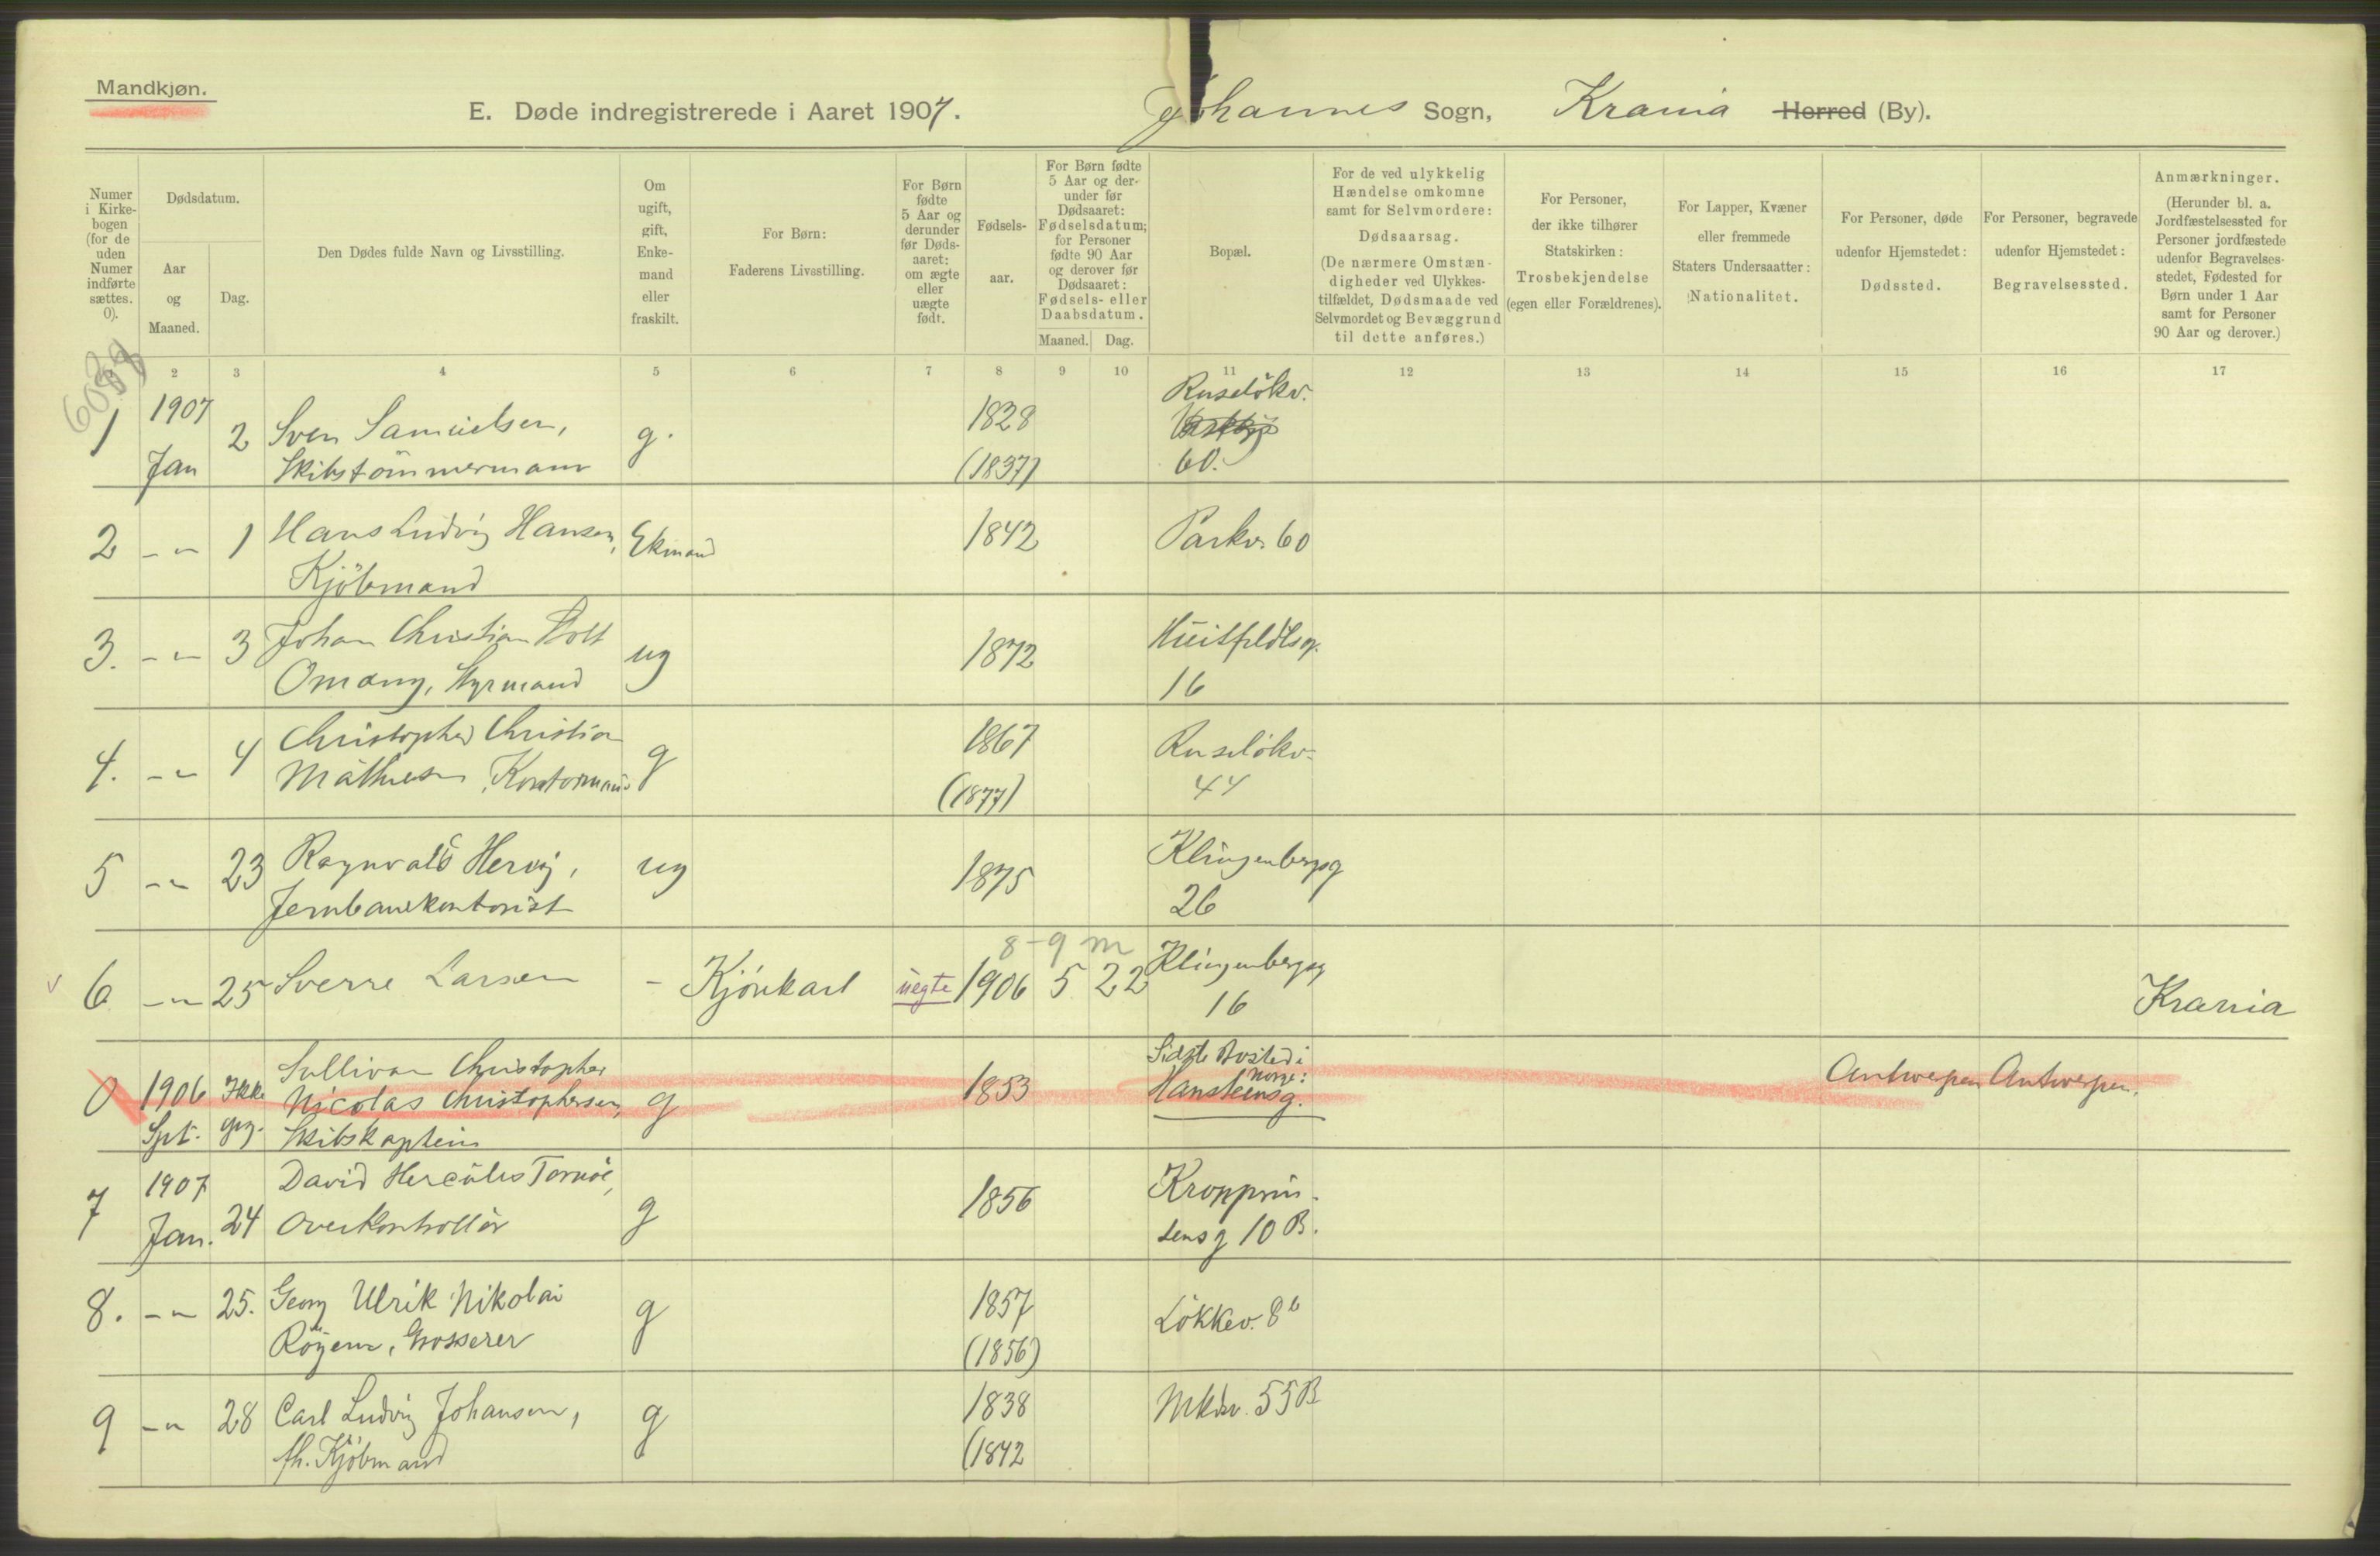 Mandkjøn.
E. Døde indregistrerede i Aaret 1907. Johannes Sogn, Krania Herred (By).
Numer i Kirke-bogen (for de uden Numer indførte sættes. 0).
Dødsdatum.
Aar og Maaned.
Dag.
Den Dødes fulde Navn og Livsstilling.
Om ugift, gift, Enke-mand eller fraskilt.
For Børn: Faderens Livsstilling.
For Børn fødte 5 Aar og derunder før Døds-aaret: om ægte eller uægte født.
Fødsels-aar.
For Børn fødte 5 Aar og der-under før Dødsaaret: Fødselsdatum; for Personer fødte 90 Aar og derover før Dødsaaret: Fødsels- eller Daabsdatum.
Maaned. Dag.
Bopæl.
For de ved ulykkelig Hændelse omkomne samt for Selvmordere: Dødsaarsag. (De nærmere Omstæn-digheder ved Ulykkes-tilfældet, Dødsmaade ved Selvmordet og Bevæggrund til dette anføres.)
For Personer, der ikke tilhører Statskirken: Trosbekjendelse (egen eller Forældrenes).
For Lapper, Kvæner eller fremmede Staters Undersaatter: Nationalitet.
For Personer, døde udenfor Hjemstedet: Dødssted.
For Personer, begravede udenfor Hjemstedet: Begravelsessted.
Anmærkninger. (Herunder bl. a. Jordfæstelsessted for Personer jordfæstede udenfor Begravelses-stedet, Fødested for Børn under 1 Aar samt for Personer 90 Aar og derover.)
2 3 4 5 6 7 8 9 10 11 12 13 14 15 16 17
1 1907 Jan 2 Sven Samuelsen, g. 1828 Ruselökv.
Skibstömmermann (1837) 60.
2 - " - 1 Hans Ludvig Hansen, Ekmand 1842 Parkv. 60
Kjöbmand
3. - " - 3 Johan Christian Holt ug 1872 Huitfeldtsg.
Omang, Styrmand 16
4. - " - 4 Christopher Christian g 1867 Ruselökv.
Mathiesen, Kontormand (1877) 44
5 - " - 23 Ragnvald Hervig, ug 1875 Klingenbergg
Jernbanekontorist 26
8 - 9 m
6 - " - 25 Sverre Larsen - Kjörekarl uegte 1906 5 22 Klingenbergg Krania
16
0 1906 Spt. Ikke opg. Sullivan Christopher g 1853 Sidste Bosted i Norge: Antwerpen Antwerpen.
Nicolas Christophersen, Hansteensg.
Skibskaptein
7 1907 Jan. 24 David Hercules Tornöe, g 1856 Kronprin-
Overkontrollör sensg 10 B.
8. - " - 25. Georg Ulrik Nikolai g 1857 Lökkev. 8b
Röyem, Grosserer (1856)
9 - " - 28 Carl Ludvig Johansen, g 1838 Mkdv. 55 B
fh. Kjöbmand (1842